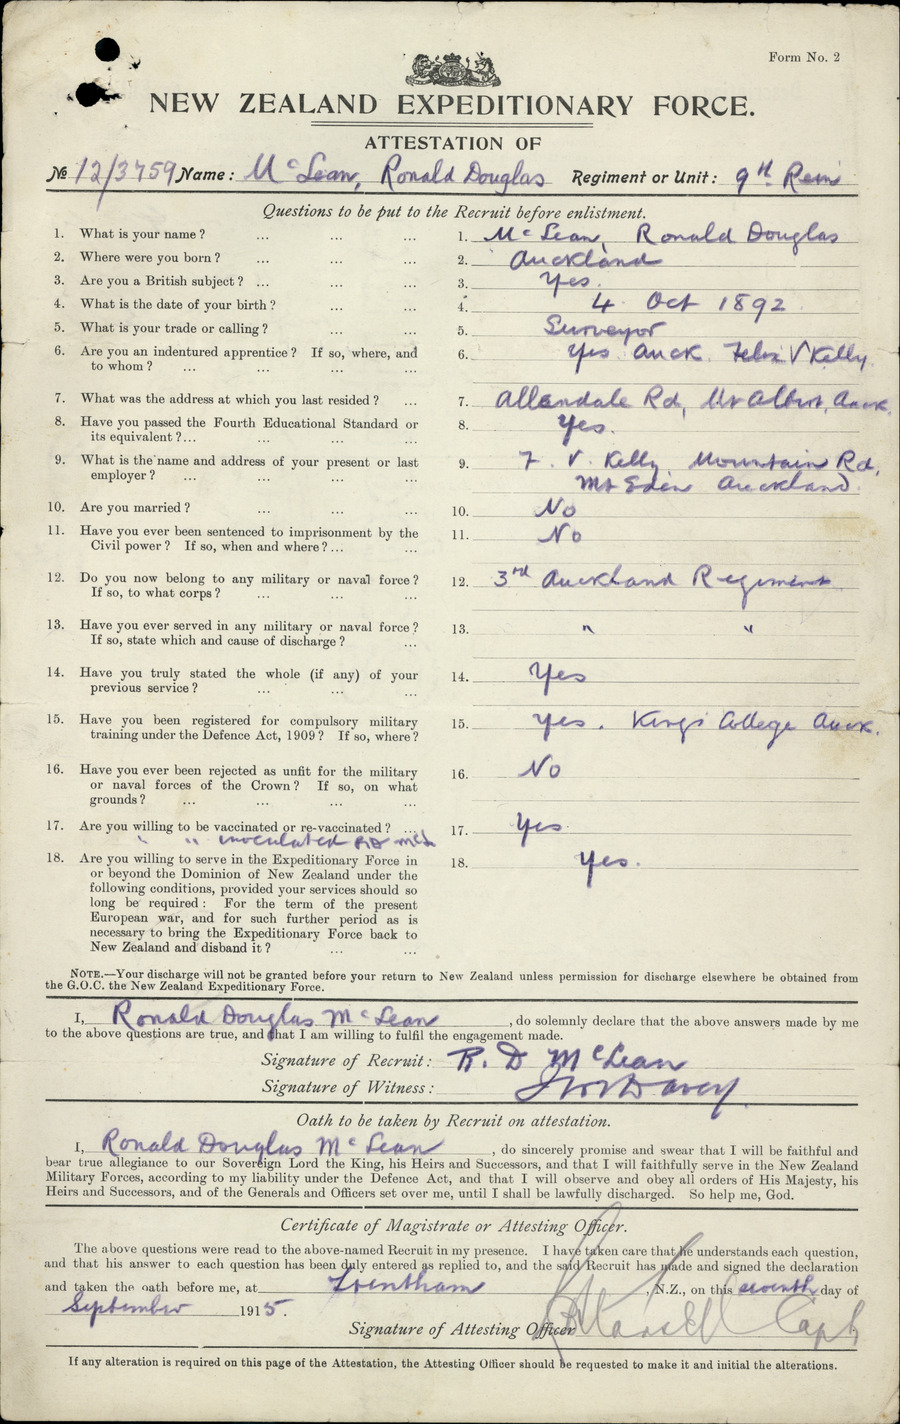 Form No. 2
NEW ZEALAND EXPEDITIONARY FORCE.
ATTESTATION OF
No 12/3759 Name: McLean, Ronald Douglas Regiment or Unit: 9th Rein
Questions to be put to the Recruit before enlistment.
1. What is your name? ... ... ... 1. McLean, Ronald Douglas
2. Where were you born? ... ... ... 2. Auckland
3. Are you a British subject? ... ... ... 3. Yes.
4. What is the date of your birth? ... ... 4. 4 Oct 1892
5. What is your trade or calling? ... ... 5. Surveyor
6. Are you an indentured apprentice? If so, where, and 6. Yes Auck. Felix V Kelly
to whom? ... ... ... ...
7. What was the address at which you last resided? ... 7. Allendale Rd, Mt Albert, Auck.
8. Have you passed the Fourth Educational Standard or 8. Yes.
its equivalent?... ... ... ...
9. What is the name and address of your present or last 9. F. V. Kelly Mountain Rd,
employer? ... ... ... ... Mt Eden Auckland.
10. Are you married? ... ... ... 10. No
11. Have you ever been sentenced to imprisonment by the 11. No
Civil power? If so, when and where?... ...
12. Do you now belong to any military or naval force? 12. 3rd Auckland Regiment
If so, to what corps? ... ... ...
13. Have you ever served in any military or naval force? 13. " "
If so, state which and cause of discharge? ...
14. Have you truly stated the whole (if any) of your 14. Yes
previous service? ... ... ...
15. Have you been registered for compulsory military 15. Yes. Kings College Auck.
training under the Defence Act, 1909? If so, where?
16. Have you ever been rejected as unfit for the military 16. No
or naval forces of the Crown? If so, on what
grounds? ... ... ... ...
17. Are you willing to be vaccinated or re-vaccinated? ... 17. Yes
" " inoculated RD McL
18. Are you willing to serve in the Expeditionary Force in 18. Yes.
or beyond the Dominion of New Zealand under the
following conditions, provided your services should so
long be required: For the term of the present
European war, and for such further period as is
necessary to bring the Expeditionary Force back to
New Zealand and disband it? ... ...
NOTE.—Your discharge will not be granted before your return to New Zealand unless permission for discharge elsewhere be obtained from
the G.O.C. the New Zealand Expeditionary Force.
I, Ronald Douglas McLean, do solemnly declare that the above answers made by me
to the above questions are true, and that I am willing to fulfil the engagement made.
Signature of Recruit: R. D McLean
Signature of Witness: Davey
Oath to be taken by Recruit on attestation.
I, Ronald Douglas McLean, do sincerely promise and swear that I will be faithful and
bear true allegiance to our Sovereign Lord the King, his Heirs and Successors, and that I will faithfully serve in the New Zealand
Military Forces, according to my liability under the Defence Act, and that I will observe and obey all orders of His Majesty, his
Heirs and Successors, and of the Generals and Officers set over me, until I shall be lawfully discharged. So help me, God.
Certificate of Magistrate or Attesting Officer.
The above questions were read to the above-named Recruit in my presence. I have taken care that he understands each question,
and that his answer to each question has been duly entered as replied to, and the said Recruit has made and signed the declaration
and taken the oath before me, at Trentham, N.Z., on this seventh day of
September 1915.
Signature of Attesting Officer Capt
If any alteration is required on this page of the Attestation, the Attesting Officer should be requested to make it and initial the alterations.